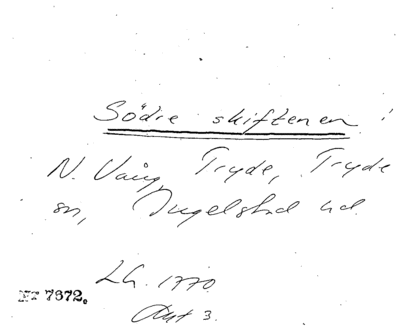 Södre skiftenen!
N. Vång, Tryde, Tryde
sn, Ingelstad hd.
LG. 1770.
NT 7672.
Akt 3.